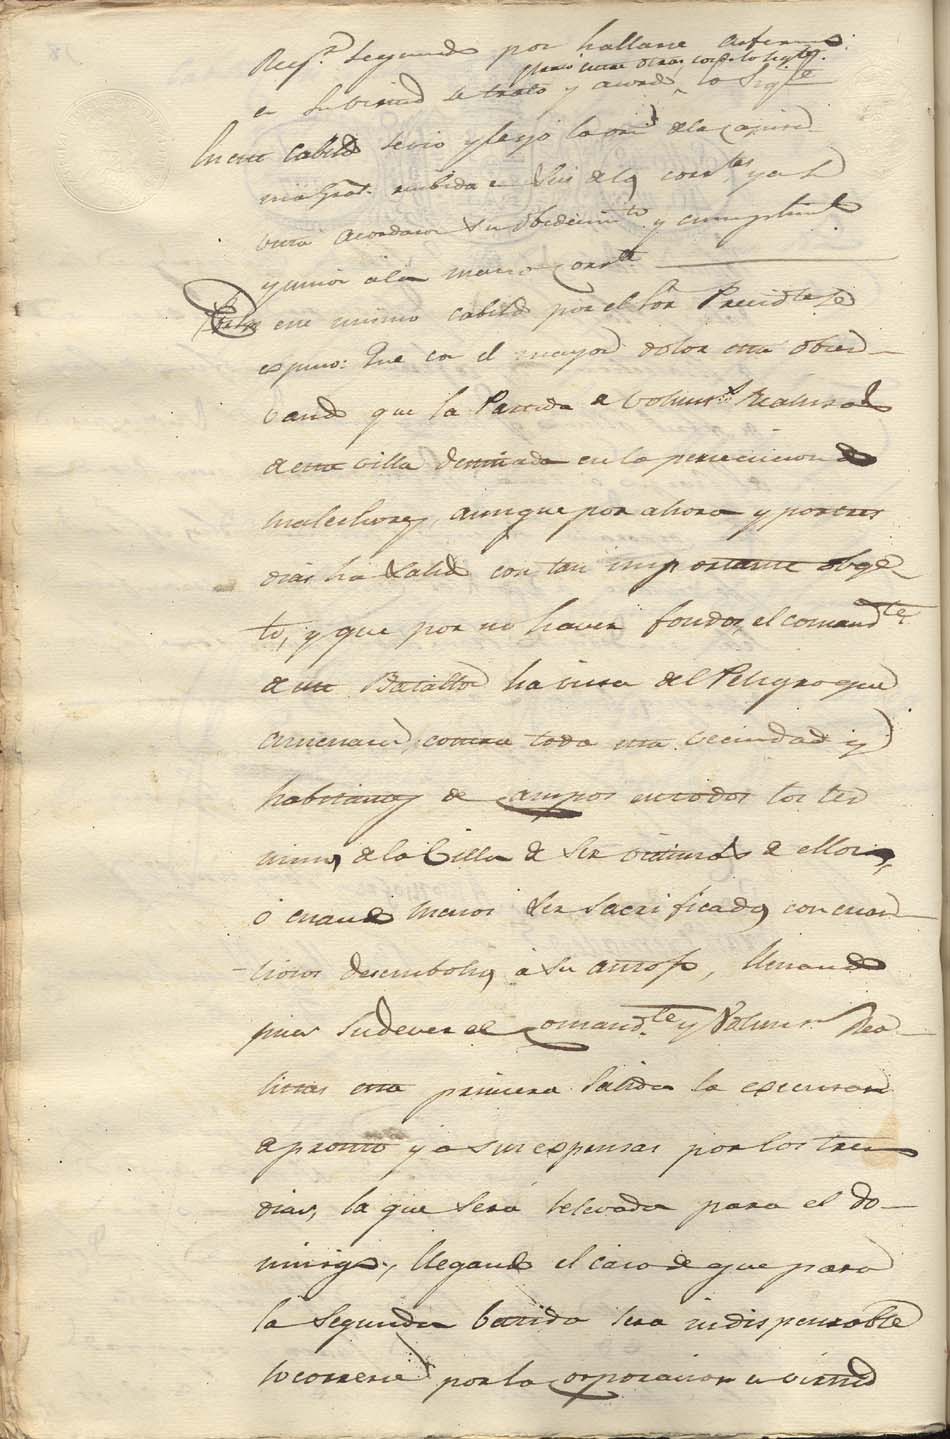 Reg.r segundo por hallarse enfermo:
en su virtud se trato y acordo lo Sig.te
entre otras cosas lo sig.te
En este Cabildo se vio y leyo la or.n de la Capita
nia Gral. recibida en seis de los corr.tes y a su
vista acordaron su obedecim.to y cumplim.to
y union a la mano corr.te
En este mismo cabildo por el Sor Precid.te se
espuso: Que con el mayor dolor está obser-
vando que la Partida de volunt.s Realistas
de esta villa destinada en la persecucion de
malechores, aunque por ahora y por tres
dias ha salido con tan importante obge-
to, y que por no haver fondos, el comand.te
de este Batallon ha vista del Peligro que
amenaza contra toda esta vecindad y
habitantes de Campos en todos los ter
minos de la Villa de ser victimas de ellos,
ó cuando menos ser sacrificados con cuan-
tiosos desembolsos á su antojo, llenando
pues su dever el Comand.te y Volunt.s Rea-
listas esta primera salida la egecutaron
de pronto y a sus expensas por los tres
dias, la que será relevada para el do-
mingo, llegando el caso de que para
la segunda batida sea indispensable
socorrerse por la Corporacion en virtud